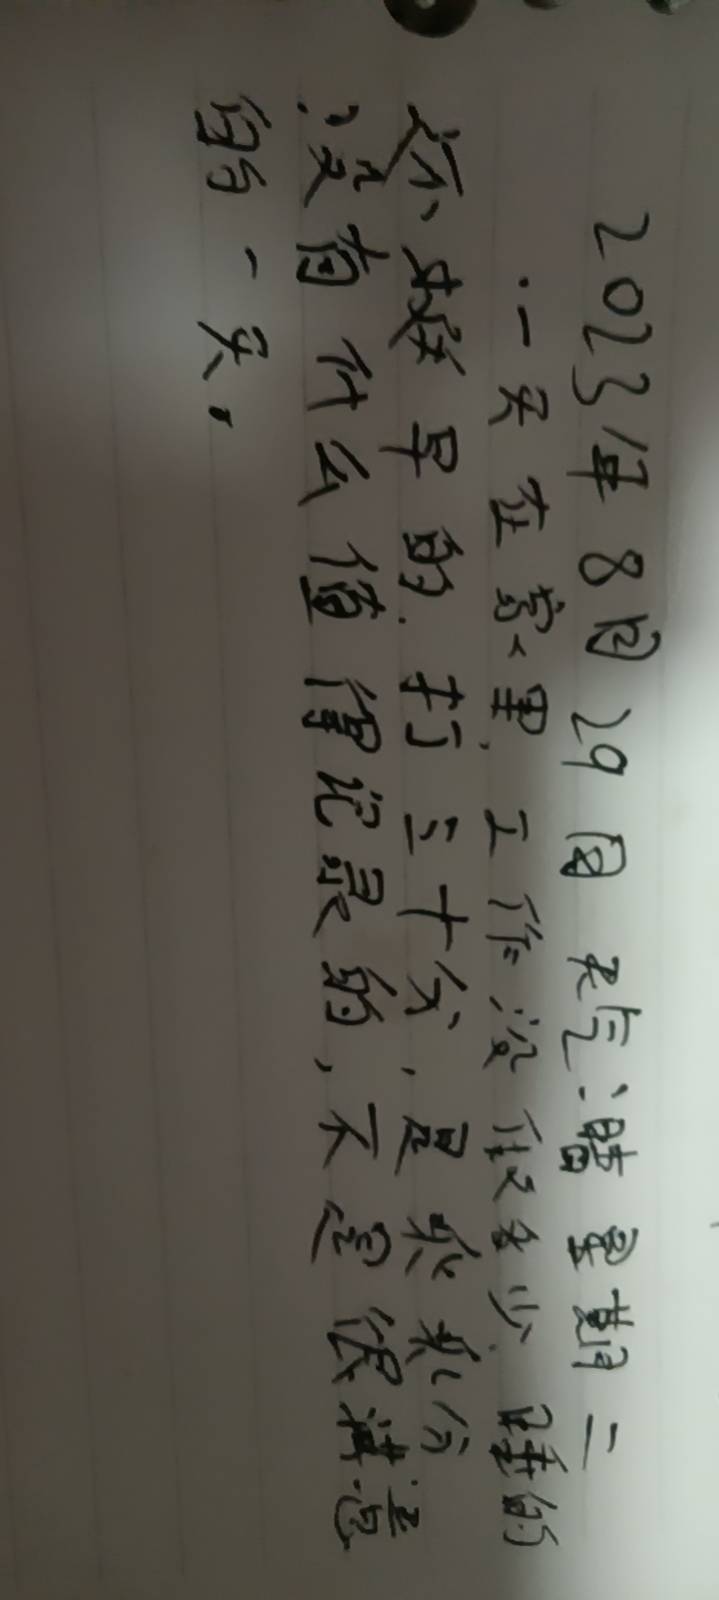 2023年8月29日 天气:晴 星期二
一天在家里,工作没做多少,睡的
还早的.打三十分,是分
没有什么值得记录的,不是很满意
的一天.